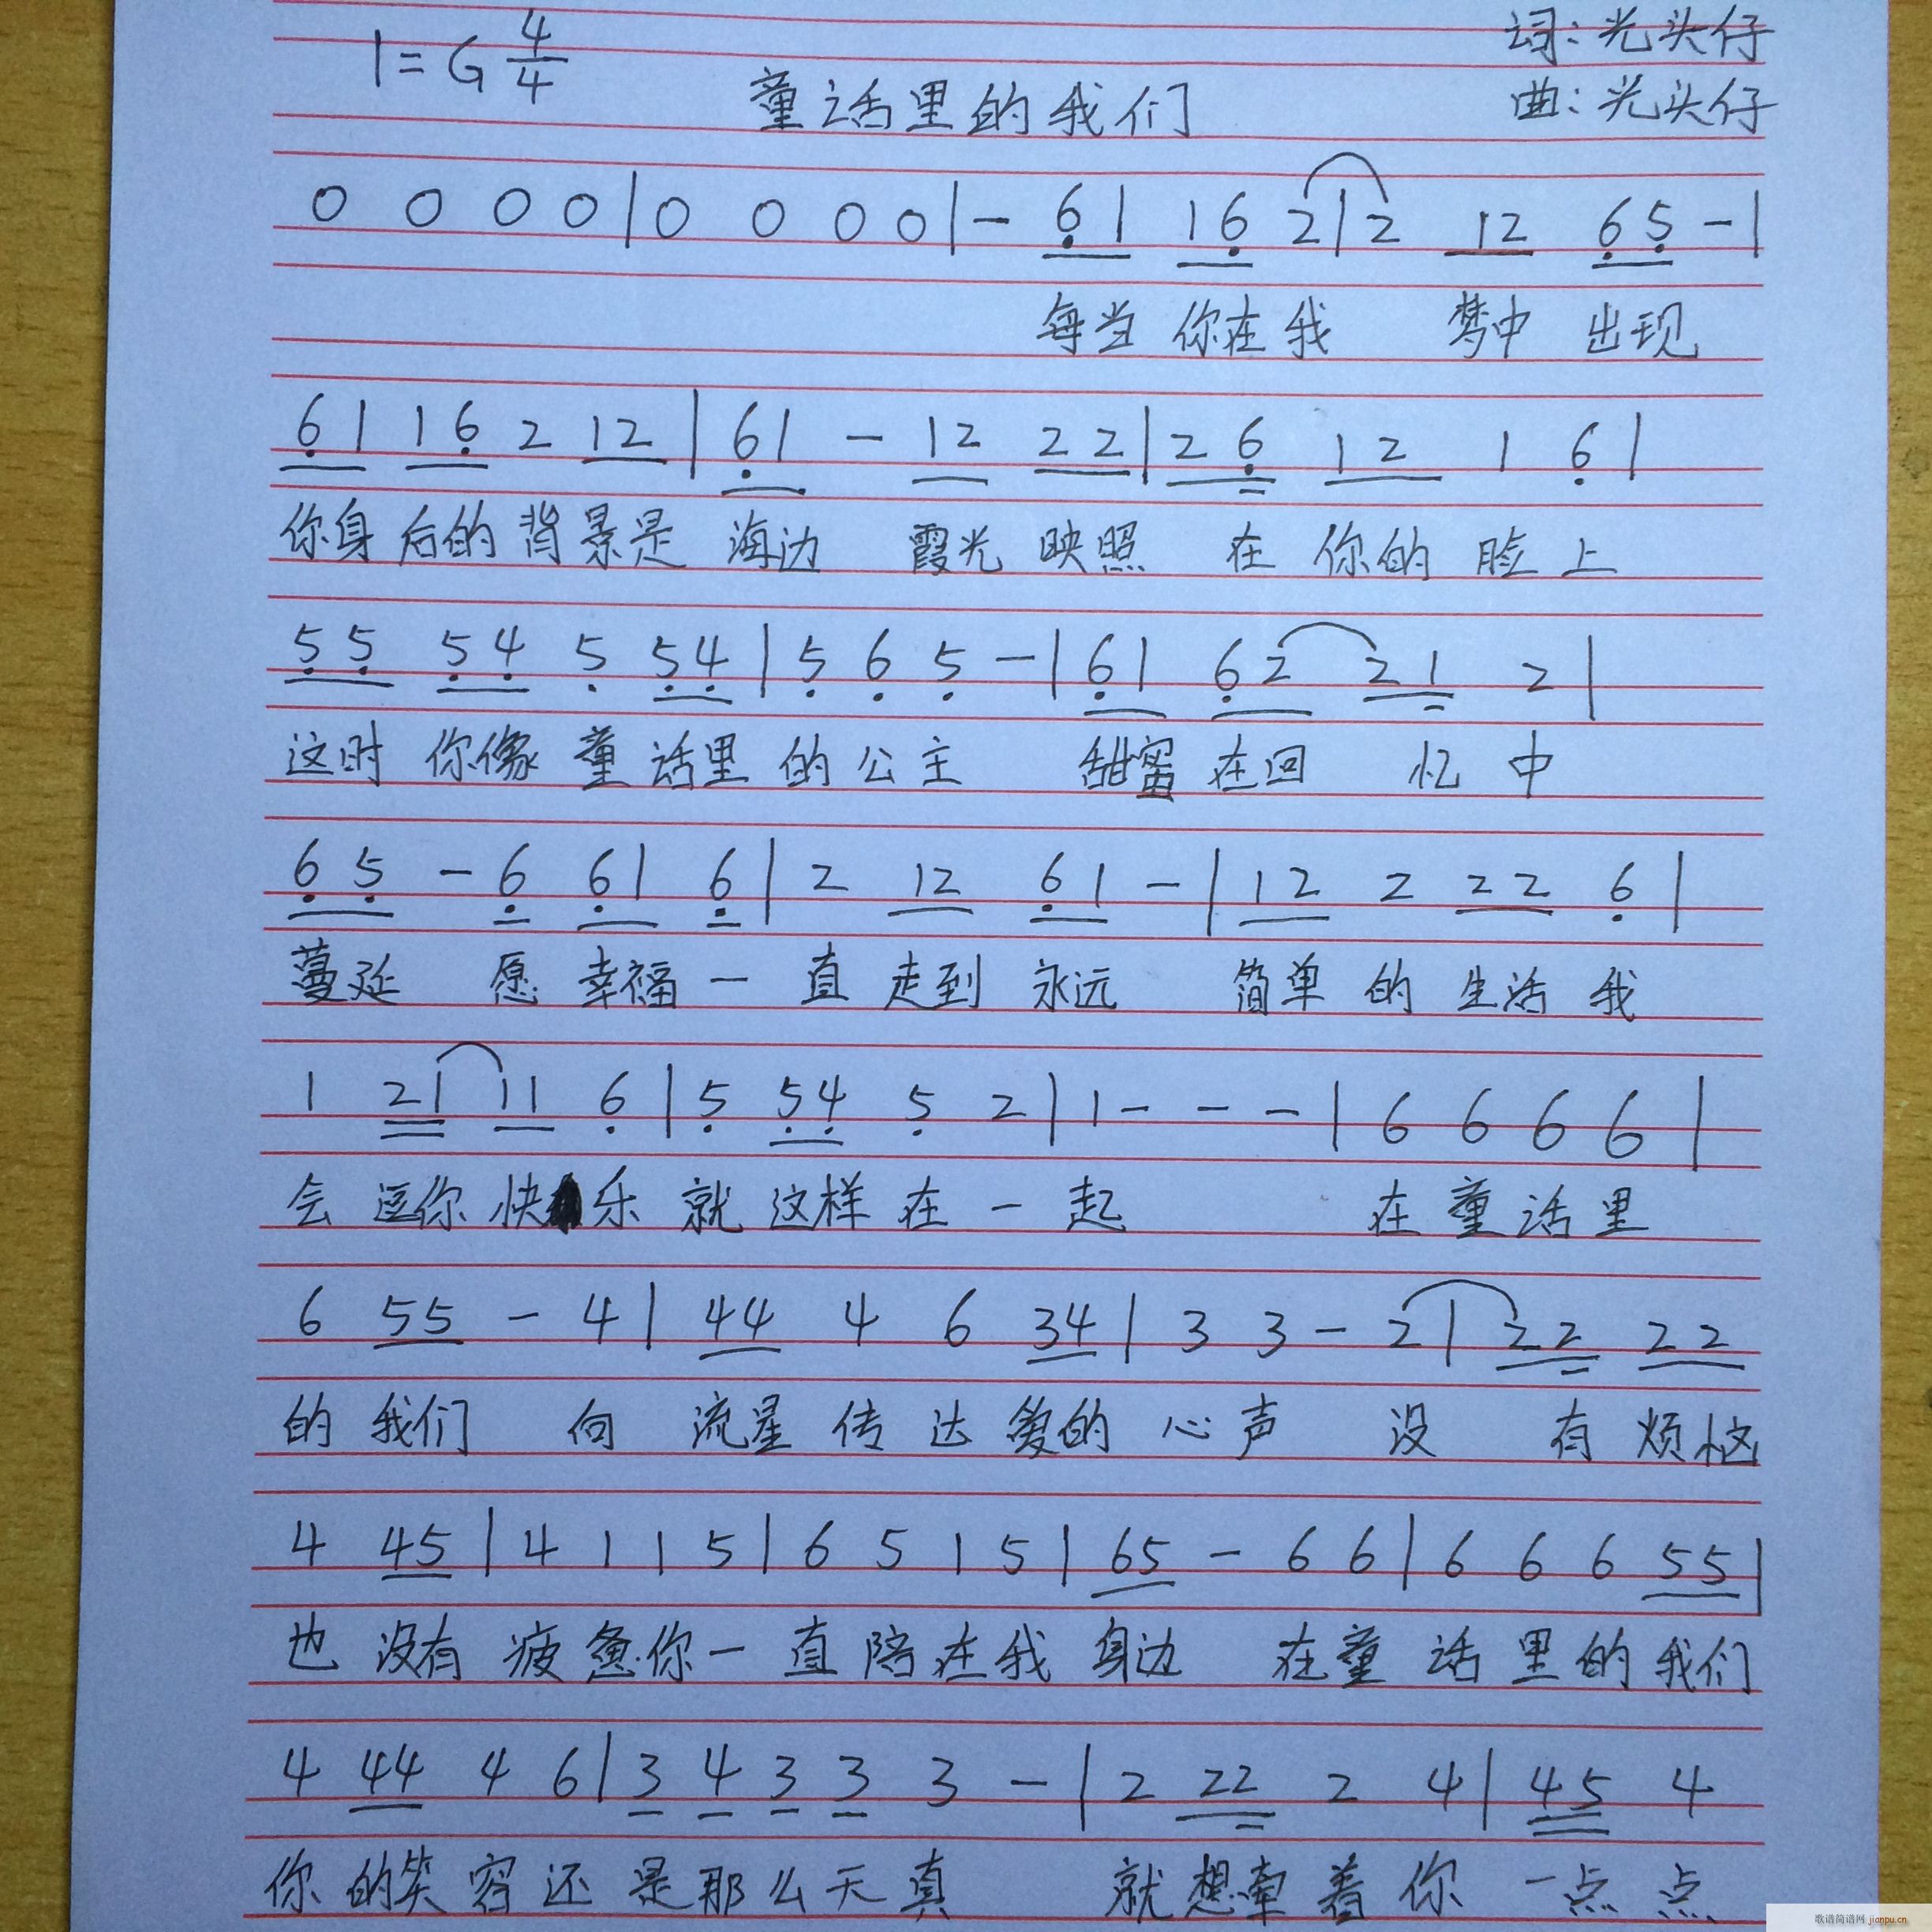 1=G 4/4
词:光头仔
童话里的我们
曲:光头仔
0 0 0 0 | 0 0 0 0 | - 61 16 2 | 2 12 65 - |
每当 你在我 梦中 出现
61 16 2 12 | 61 - 12 22 | 26 12 1 6 |
你身后的背景是 海边 霞光映照 在你的脸上
55 54 5 54 | 5 6 5 - | 61 62 21 2 |
这时你像童话里的公主 甜蜜在回忆中
65 - 6 61 6 | 2 12 61 - | 12 2 22 6 |
蔓延 愿幸福一直走到永远 简单的生活我
1 21 11 6 | 5 54 5 2 | 1 - - - | 6 6 6 6 |
会逗你快乐就这样在一起 在童话里
6 55 - 4 | 44 4 6 34 | 3 3 - 2 | 22 22
的我们 向流星传达爱的心声 没有烦恼
4 45 | 4 1 1 5 | 6 5 1 5 | 65 - 6 6 | 6 6 6 55 |
也没有疲惫你一直陪在我身边 在童话里的我们
4 44 4 6 | 3 4 3 3 3 - | 2 22 2 4 | 45 4
你的笑容还是那么天真 就想牵着你一点点
歌谱简谱网 jianpu.cn